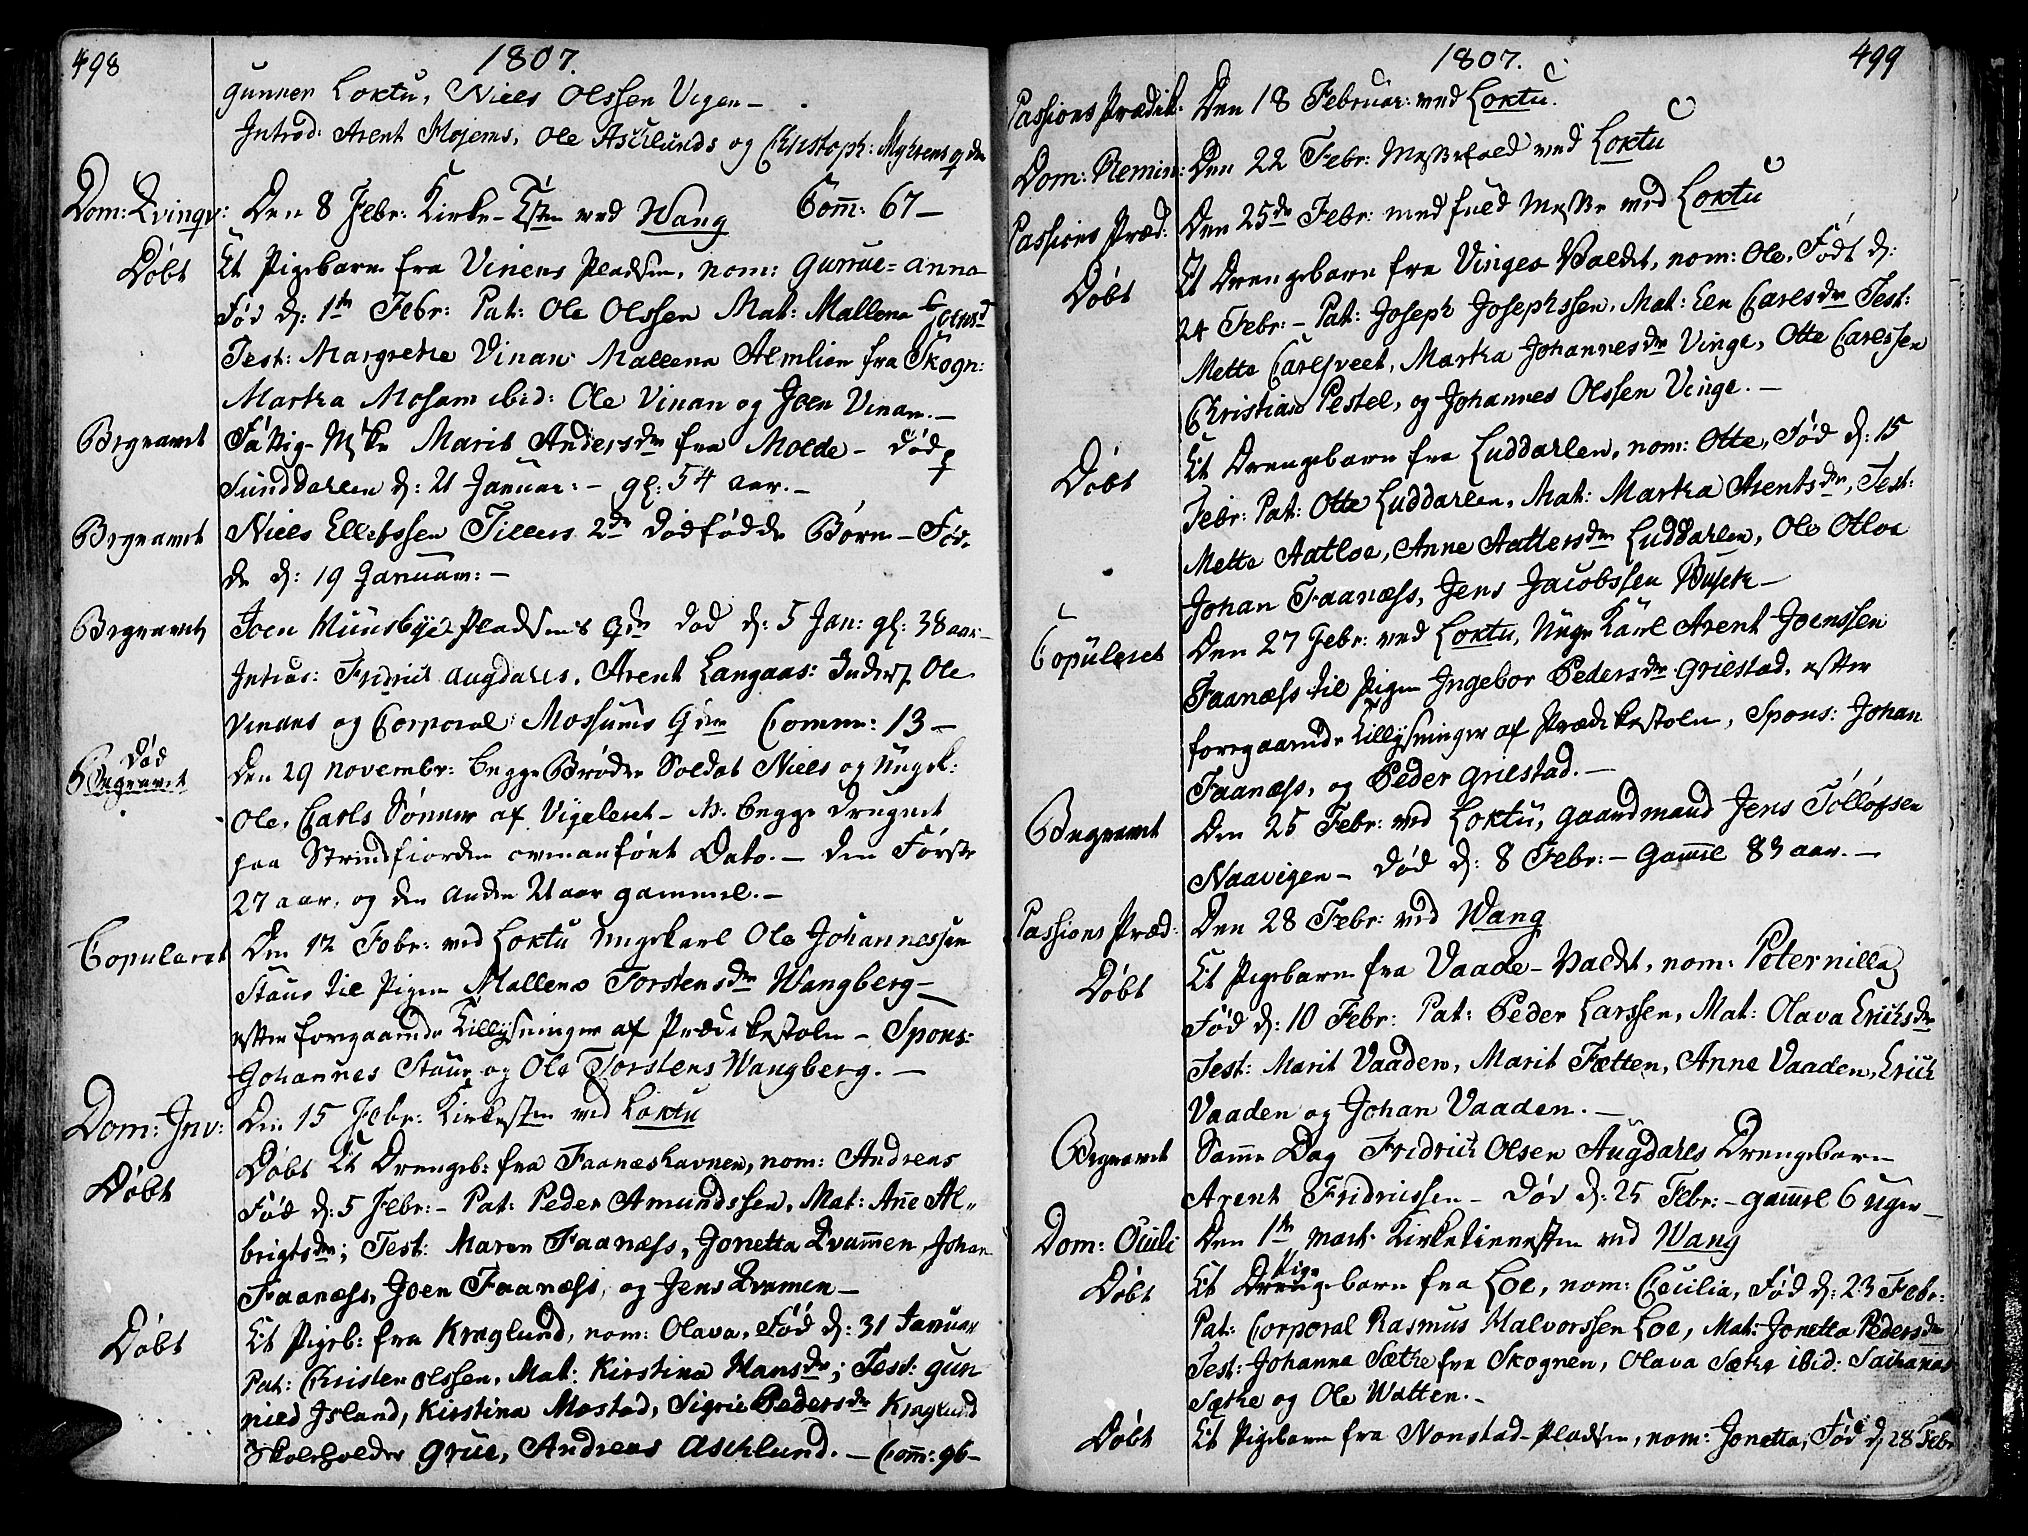 498
1807.
Gunner Loktu, Niels Olssen Vigen –
Introd: Arent Mosems, Ole Aschlunds og Christoph: Myhrens q den
Dom: Qvinqv: Den 8 Febr: Kirke-Tsten ved Wang Com̄: 67 –
Døbt Et Pigebarn fra Vinens Pladsen, nom: Gurrue-Anna
Fød d: 1ste Febr: Pat: Ole Olssen Mat: Mallena Joensd
Test: Margrethe Vinan Mallena Almlien fra Skogn:
Martha Mosam ibid: Ole Vinan og Joen Vinan. –
Begravet Fattig Marit Andersdr fra Molde – død
Sunddarlen d: 21 Januar: – gl: 54 aar. –
Begravet Niels Ellefssen Tillers 2de dødfødde Børn – Fød-
de d: 19 Januarii: –
Begravet Joen Muusbye-Pladsens død d: 5 Jan: gl: 38 aar –
Fridrich Augdahls, Arent Langaas: Ole
Vinans og Corporal Mossums Comm: 13 –
Død Begravet Den 29 Novembr: begge Brødre Soldat Niels og Ungk:
Ole, Carls Sønner af Vigeleret – NB. begge druknet
paa Strindfiorden ovenanført Dato. – den Første
27 aar, og den anden 21 aar gammel. –
Copuleret Den 12 Febr: ved Loktu Ungekarl Ole Johannessen
Staur til Pigen Mallena Torstensdr Wangberg –
efter foregaaende Tillysninger af Prædikestolen – Spons:
Johannes Staur og Ole Torstens Wangberg. –
Dom: Inv: Den 15 Febr: Kirketsten ved Loktu
Døbt Døbt Et Drengeb: fra Faaneshavnen, nom: Andreas
Fød d: 5 Febr: – Pat: Peder Amundssen, Mat: Anne Al-
brigtsdr; Test: Maren Faanæss, Jonetta Qvammen, Johan
Faanæss, Joen Faanæss, og Jens Qvamen –
Døbt Et Pigeb: fra Kraglund, nom: Olava, Fød d: 31 Januar
Pat: Christen Olssen, Mat: Kirstina Hansdr; Test: Gun
nild Island, Kirstina Mostad, Sigrie Pedersdr Kraglund
Skoleholder Grue, Andreas Aschlund. – Com̄: 96 –
1807.
499
Passions Prædik: Den 18 Februar: ved Loktu.
Dom: Remin: Den 22 Febr: Messefald ved Loktu
Passions Præd: Den 25de Febr: med fuld Messe ved Loktu
Døbt Et Drengebarn fra Vinges Valdet, nom: Ole, Født d:
24 Febr: – Pat: Joseph Josephssen, Mat: Elen Carlsdr Test:
Mette Carlsveet, Martha Johannesdr Vinge, Otte Carlssen
Christian Pestel, og Johannes Olssen Vinge. –
Døbt Et Drengebarn fra Luddarlen, nom: Otte, Fød d: 15
Febr: Pat: Otte Luddarlen, Mat: Martha Arentsdr, Test:
Mette Aatloe, Anne Aattersdr Luddarlen, Ole Otloe
Johan Faanæss, Jens Jacobssen –
Copuleret Den 27 Febr: ved Loktu, Unge Karl Arent Joenssen
Faanæss til Pigen Ingebor Pedersdr Griestad, efter
foregaaende Tillysninger af Prædikestolen, Spons: Johan
Faanæss, og Peder Griestad. –
Begravet Den 25 Febr: ved Loktu, Gaardmand Jens Tølløfsen
Naavigen – død d: 8 Febr: – Gam̄el 83 aar. –
Passions Præd: Den 28 Febr: ved Wang
Døbt Et Pigebarn fra Vaade-Valdet, nom: Peternilla,
Fød d: 10 Febr: Pat: Peder Larssen, Mat: Olava Erichsdr
Test: Marit Vaaden, Marit Fætten, Anne Vaaden, Erich
Vaaden og Johan Vaaden. –
Begravet Samme Dag Fridrich Olsen Augdahls Drengebarn
Arent Fridrichssen – Død d: 25 Febr: – gam̄el 6 Uger –
Dom: Oculi Den 1ste Marti Kirketienesten ved Wang
Døbt Et Drengebarn Pige fra Loe, nom: Cecilia, Fød d: 23 Febr:
Pat: Corporal Rasmus Halvorssen Loe, Mat: Jonetta Pedersdr
Test: Johanna Sæthe fra Skognen, Olava Sæthe ibid: Sacharias
Sæthe og Ole Watten. –
Døbt Et Pigebarn fra Nonstad-Pladsen, nom: Jonetta, Fød d. 28 Febr